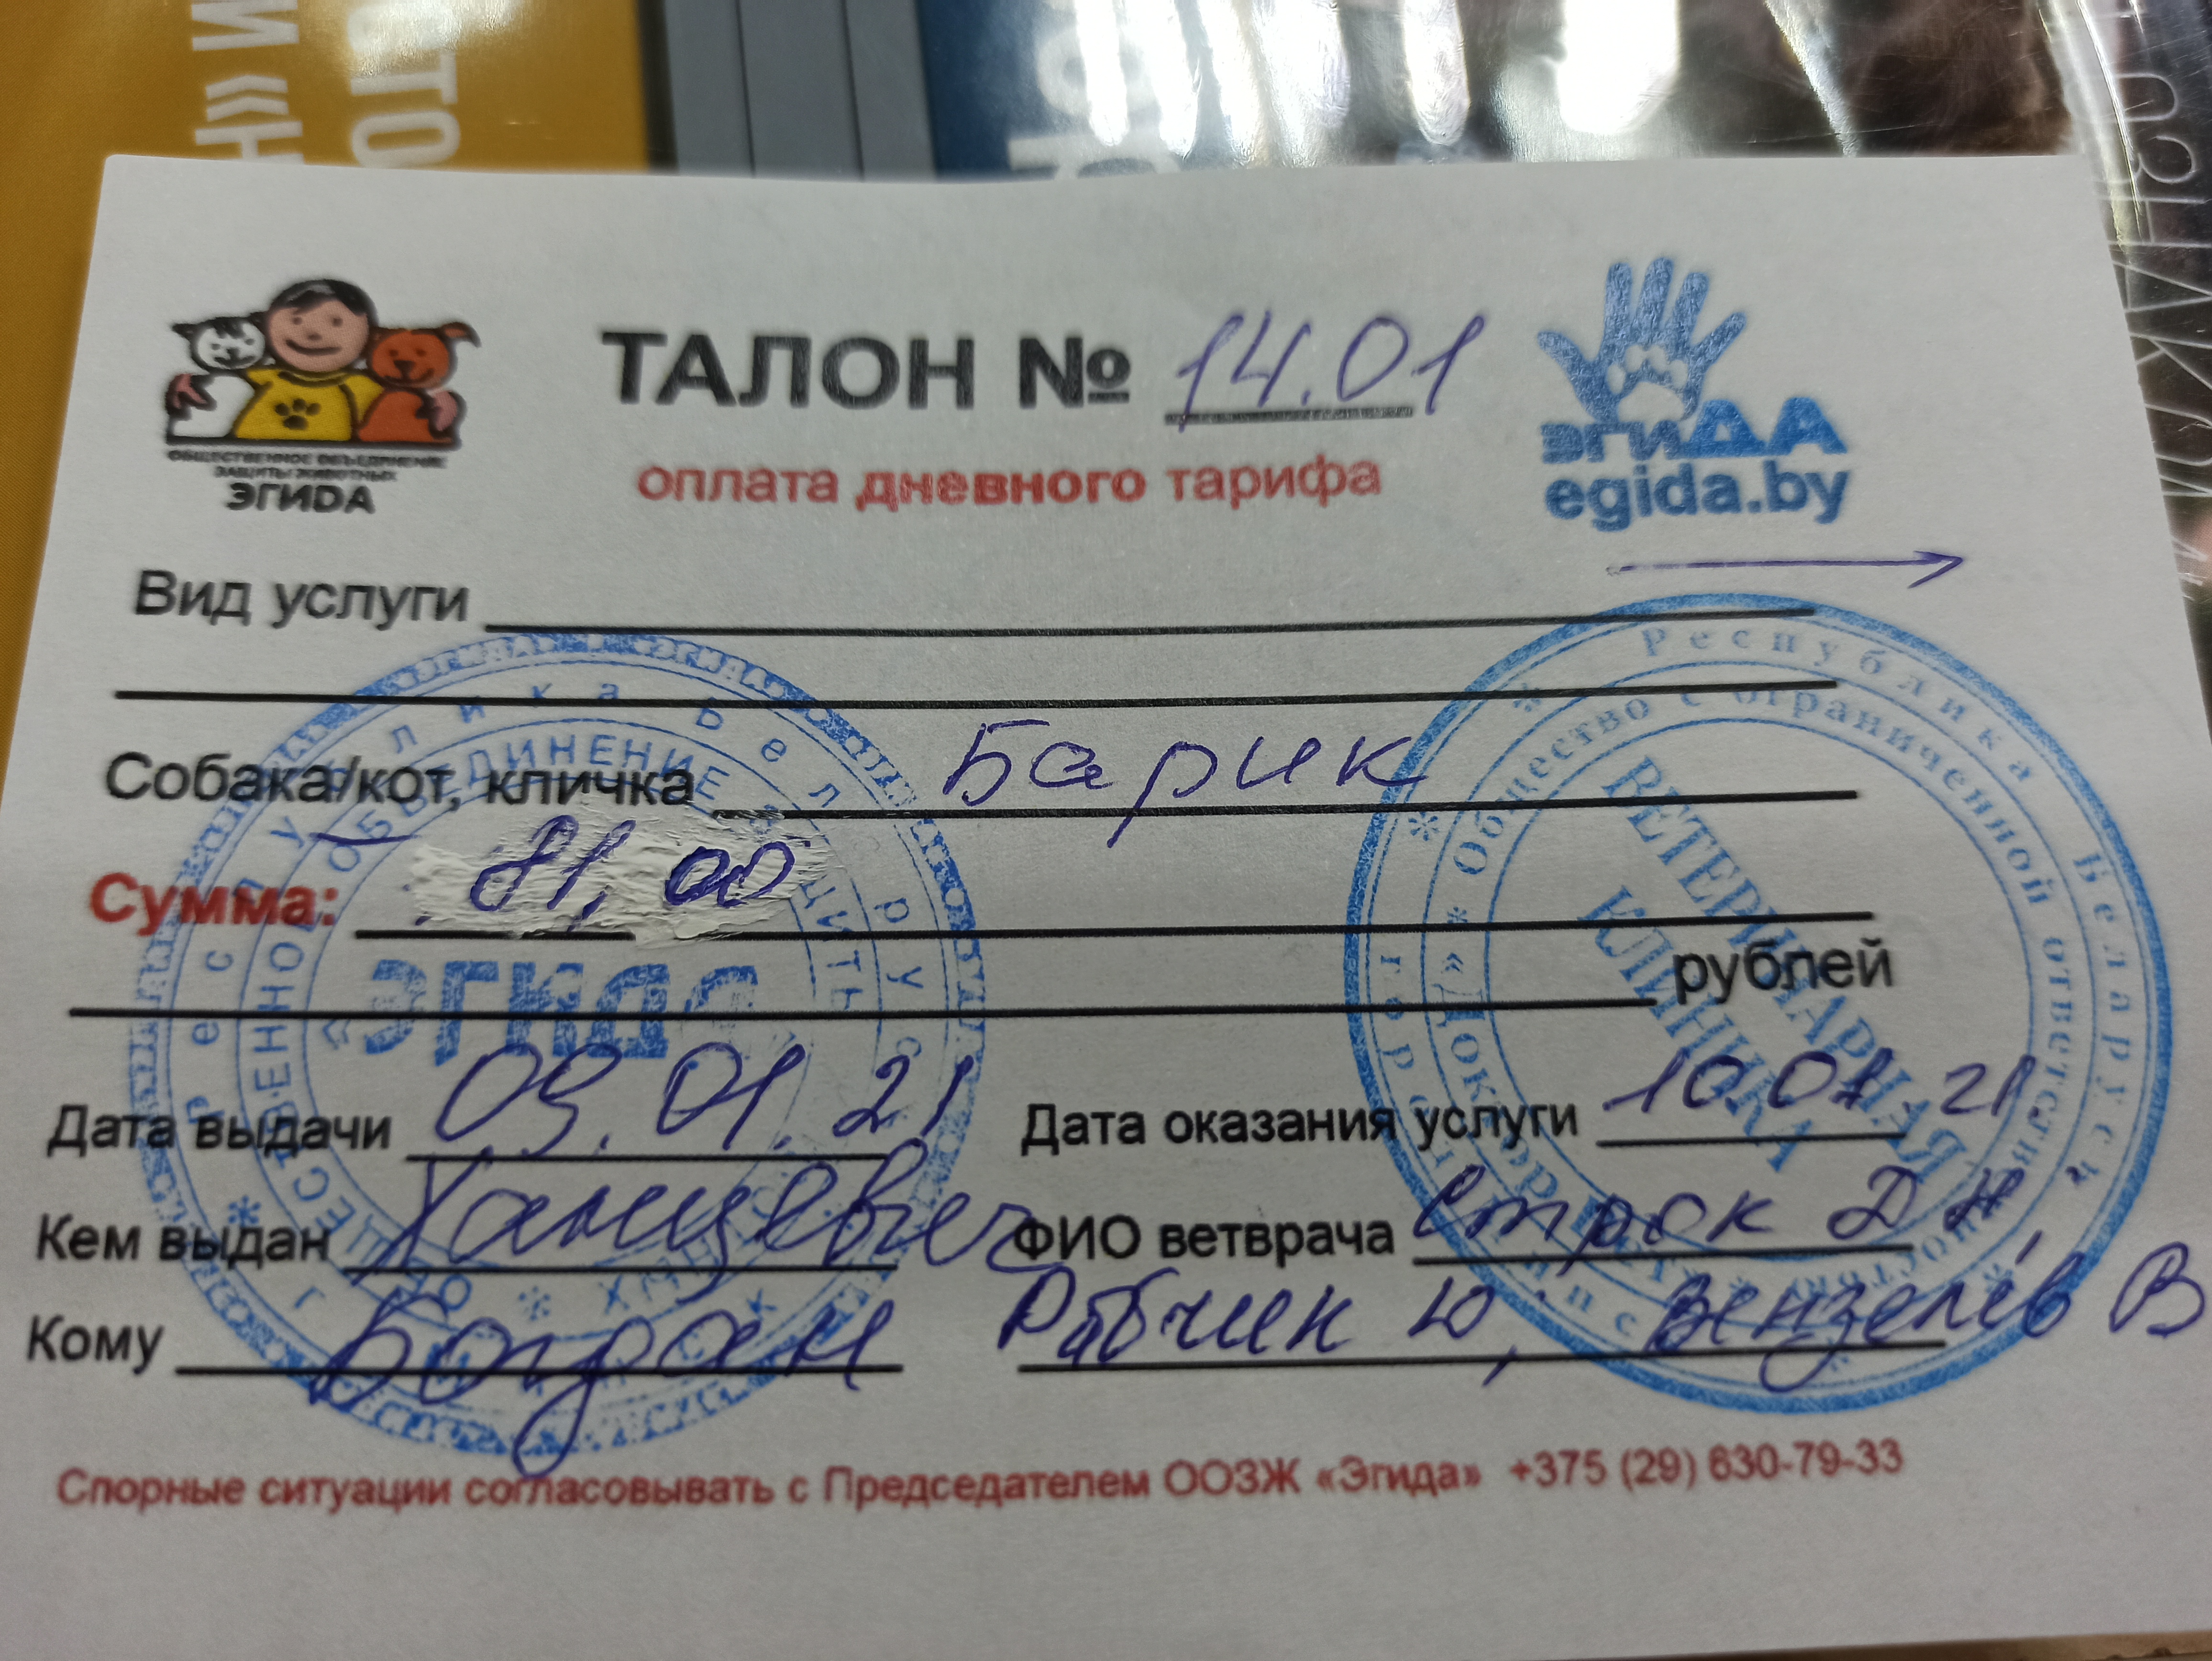 ТАЛОН № 14.01
оплата дневного тарифа
ОБЩЕСТВЕННОЕ ОБЪЕДИНЕНИЕ
ЗАЩИТЫ ЖИВОТНЫХ
ЭГИДА
ЭГИДА
egida.by
Вид услуги
Собака/кот, кличка Барик
Сумма: 81,00
рублей
Дата выдачи 09.01.21 Дата оказания услуги 10.01.21
Кем выдан Ханцевич ФИО ветврача Строк Д Н,
Кому Богдан Рябчин Ю, Вензелёв В
Спорные ситуации согласовывать с Председателем ООЗЖ «Эгида» +375 (29) 630-79-33
Республика Беларусь
ЭГИДА
Республика Беларусь
Общество с ограниченной ответственностью
ВЕТЕРИНАРНАЯ
КЛИНИКА